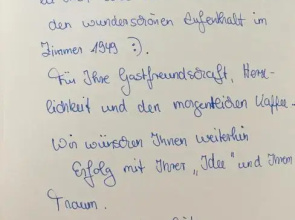 den wunderschönen Aufenthalt im
Zimmer 1949 :).
Für Ihre Gastfreundschaft, Herz-
lichkeit und den morgentlichen Kaffee.
Wir wünschen Ihnen weiterhin
Erfolg mit Ihrer „Idee" und Ihrem
Traum.